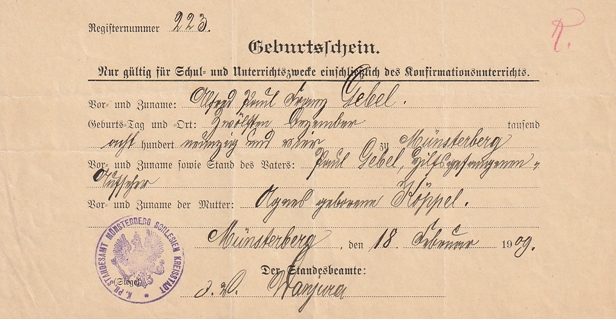 Registernummer 223.
R.
Geburtsschein.
Nur gültig für Schul- und Unterrichtszwecke einschließlich des Konfirmationsunterrichts.
Vor- und Zuname: Alfred Paul Franz Gebel.
Geburts-Tag und -Ort: Zwölften Dezember tausend
acht hundert neunzig und vier zu Münsterberg
Vor- und Zuname sowie Stand des Vaters: Paul Gebel, Hilfsgefangenen-
Aufseher
Vor- und Zuname der Mutter: Agnes geborene Köppel.
Münsterberg, den 18 Februar 1909.
Der Standesbeamte:
(Siegel)
K. PR. STANDESAMT MÜNSTERBERG SCHLESIEN KREISSTADT
J. V. Wanjura